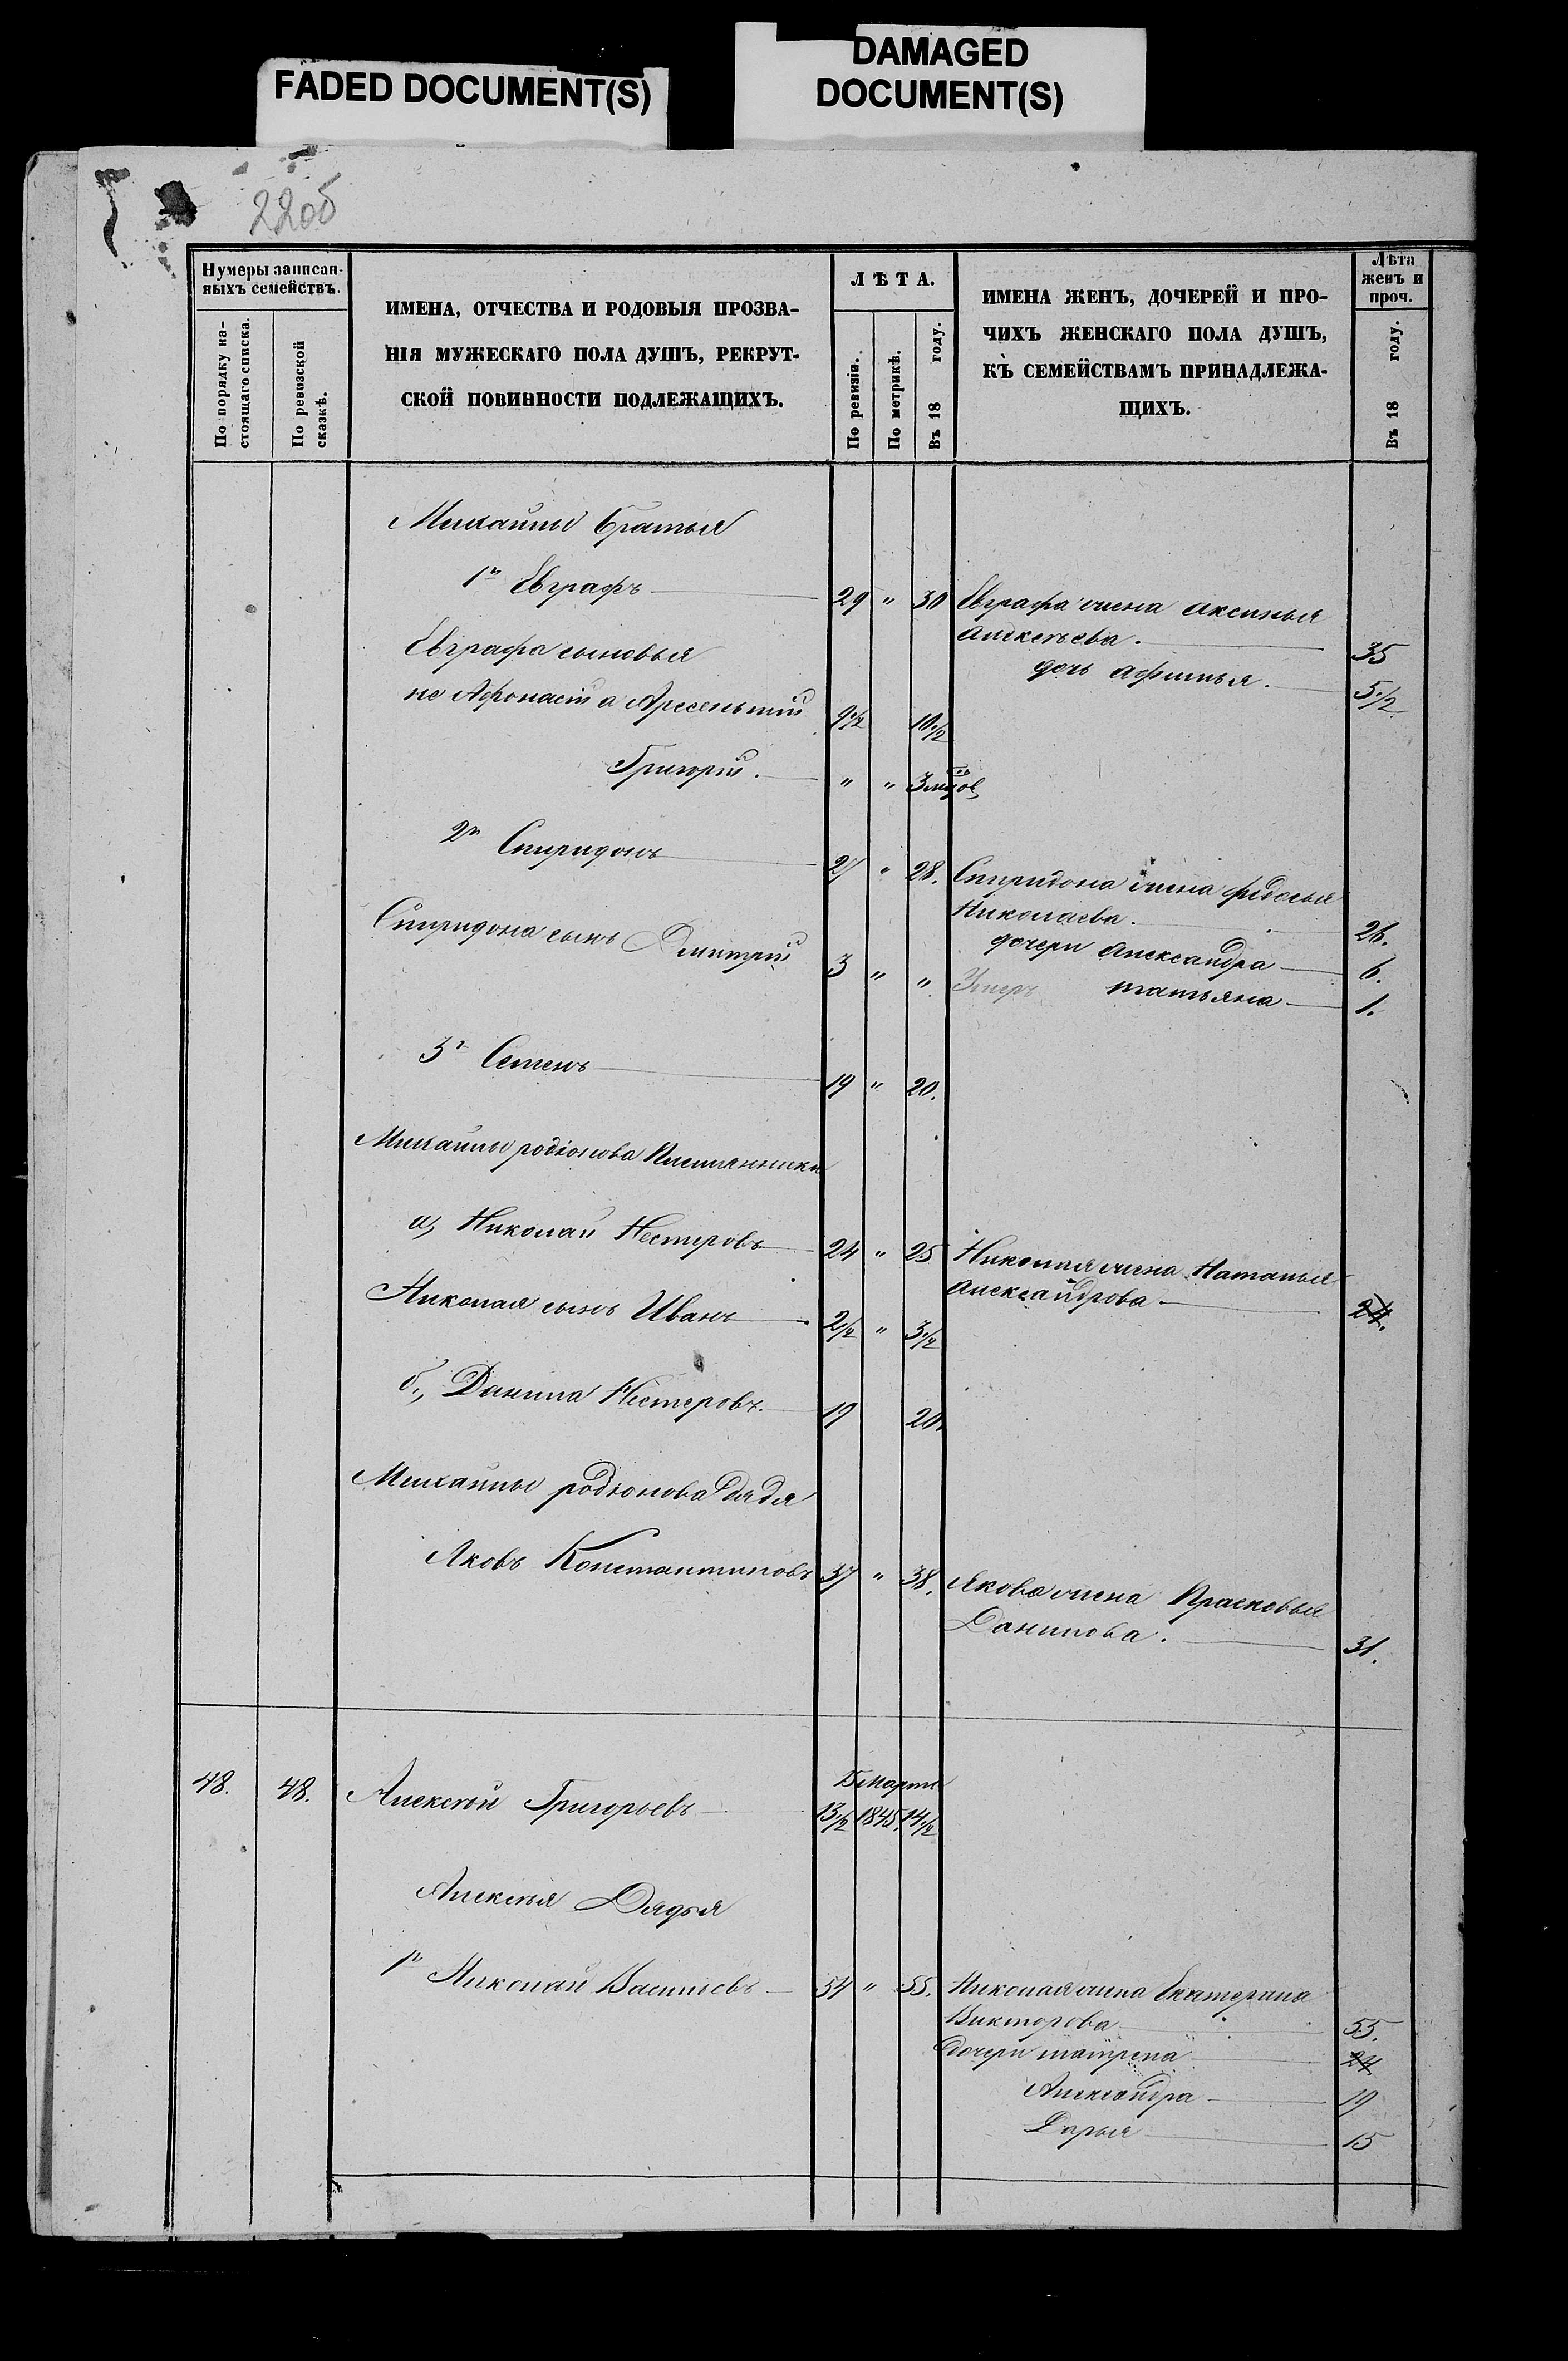 FADED DOCUMENT(S)
DAMAGED
DOCUMENT(S)
22об
Нумеры записан-
ныхъ семействъ.
По порядку на-
стоящаго списка.
По ревизской
сказкѣ.
ИМЕНА, ОТЧЕСТВА И РОДОВЫЯ ПРОЗВА-
НІЯ МУЖЕСКАГО ПОЛА ДУШЪ, РЕКРУТ-
СКОЙ ПОВИННОСТИ ПОДЛЕЖАЩИХЪ.
ЛѢТА.
По ревизіи.
По метрикѣ.
Въ 18 году.
ИМЕНА ЖЕНЪ, ДОЧЕРЕЙ И ПРО-
ЧИХЪ ЖЕНСКАГО ПОЛА ДУШЪ,
КЪ СЕМЕЙСТВАМЪ ПРИНАДЛЕЖА-
ЩИХЪ.
Лѣта
женъ и
проч.
Въ 18 году.
Михайлы братья
1й Евграфъ 29 " 30 Евграфа жена Аксинья
Алексѣева. 35
дочь Афимья. 5 1/2
Евграфа сыновья
не Афонасій а Арсентій 9 1/2 10 1/2
Григорій. " " 3 мѣсяцов
2й Спиридонъ 27 " 28. Спиридона жена Федосья
Николаева. 26.
дочери Александра 6.
Татьяна 1.
Спиридона сынъ Дмитрій 3 " " Умеръ
3й Семенъ 19 " 20.
Михайлы Родіонова Племянники
а, Николай Нестеровъ 24 " 25 Николая жена Наталья
Александрова 24.
Николая сынъ Иванъ 2 1/2 " 3 1/2
б., Данила Нестеровъ. 19 20.
Михайлы Родіонова Дядя
Яковъ Константиновъ 37 " 38. Якова жена Прасковья
Данилова. 31.
48. 48. Алексѣй Григорьевъ 13 1/2 15 Марта 1845. 14 1/2
Алексѣя Дядья
1й Николай Васильевъ 54 " 55. Николая жена Екатерина
Викторова 55.
дочери Матрена 24
Александра 19
Дарья 15